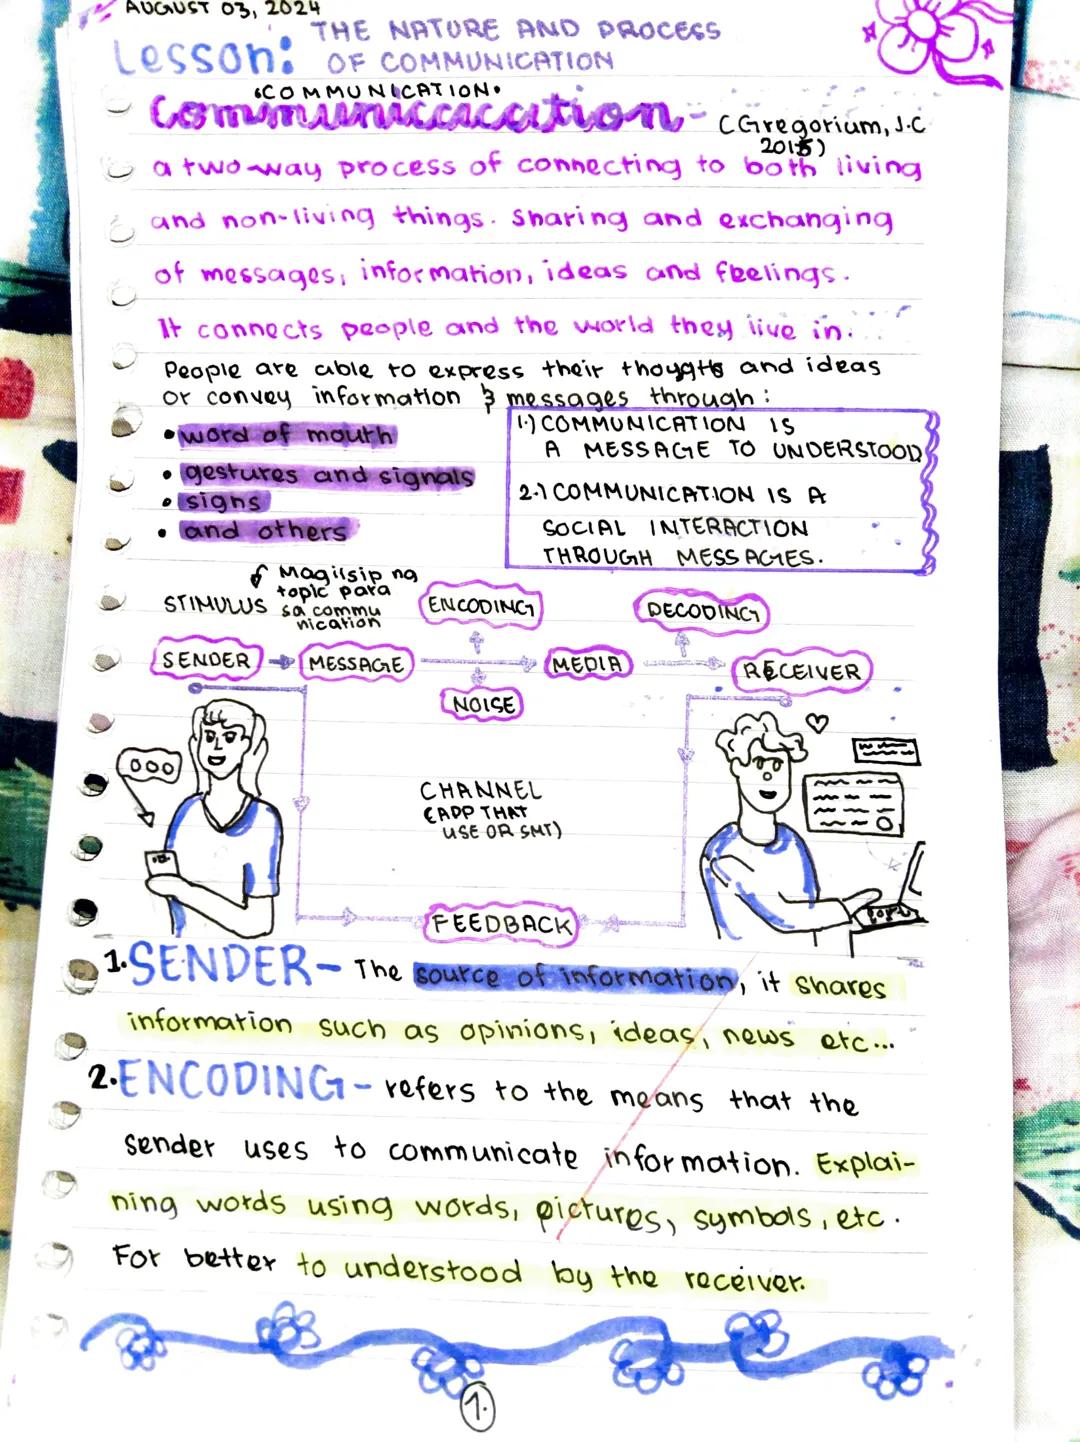 AUGUST 03, 2024
Lesson: THE NATURE AND PROCESS
OF COMMUNICATION
•COMMUNICATION•
Communiccacation - (Gregorium, J.C
2015)
a two-way process of connecting to both living
and non-living things. Sharing and exchanging
of messages, information, ideas and feelings.
It connects people and the world they live in.
People are able to express their thoughts and ideas
or convey information & messages through:
• word of mouth
• gestures and signals
• signs
• and others
1.) COMMUNICATION IS
A MESSAGE TO UNDERSTOOD
2.) COMMUNICATION IS A
SOCIAL INTERACTION
THROUGH MESSAGES.
Magiisip ng
topic para
sa commu
nication
STIMULUS
ENCODING
DECODING
SENDER
MESSAGE
MEDIA
RECEIVER
NOISE
CHANNEL
(APP THAT
USE OR SMT)
FEEDBACK
1. SENDER - The source of information, it shares
information such as opinions, ideas, news etc...
2. ENCODING - refers to the means that the
sender uses to communicate information. Explai-
ning words using words, pictures, symbols, etc.
For better to understood by the receiver.
1.